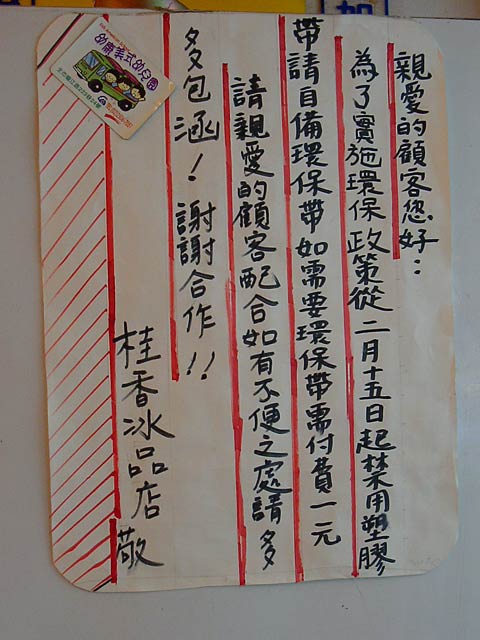 親愛的顧客您好：
為了實施環保政策從二月十五日起禁用塑膠
帶請自備環保帶如需要環保帶需付費一元
請親愛的顧客配合如有不便之處請多
多包涵！謝謝合作！！
桂香冰品店敬